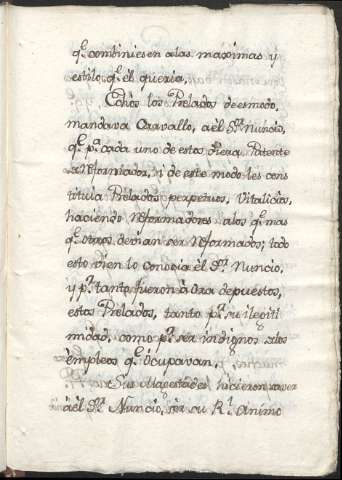 q.^e combiniesen a las maximas y
estilo q.^e él queria.
Echòs los Prelados deesmodo,
mandava Carvallo, a él S.^r Nuncio,
q.^e p.^a cada uno de estos diera Patente
a Reformador, i de este modo les cons
tituia Prelados perpetuos, Vitalicios,
haciendo Reformadores a los q.^e mas
q.^e otros devian ser Reformados; todo
esto bien lo conocia él S.^r Nuncio,
y p.^r tanto fueron á ora depuestos,
estos Prelados, tanto p.^r su ilegiti
midad, como p.^r ser indignos a los
empleos q.^e ócupavan.
Sus Magestades hicieron saver
á él S.^r Nuncio, ser su R.^l animo